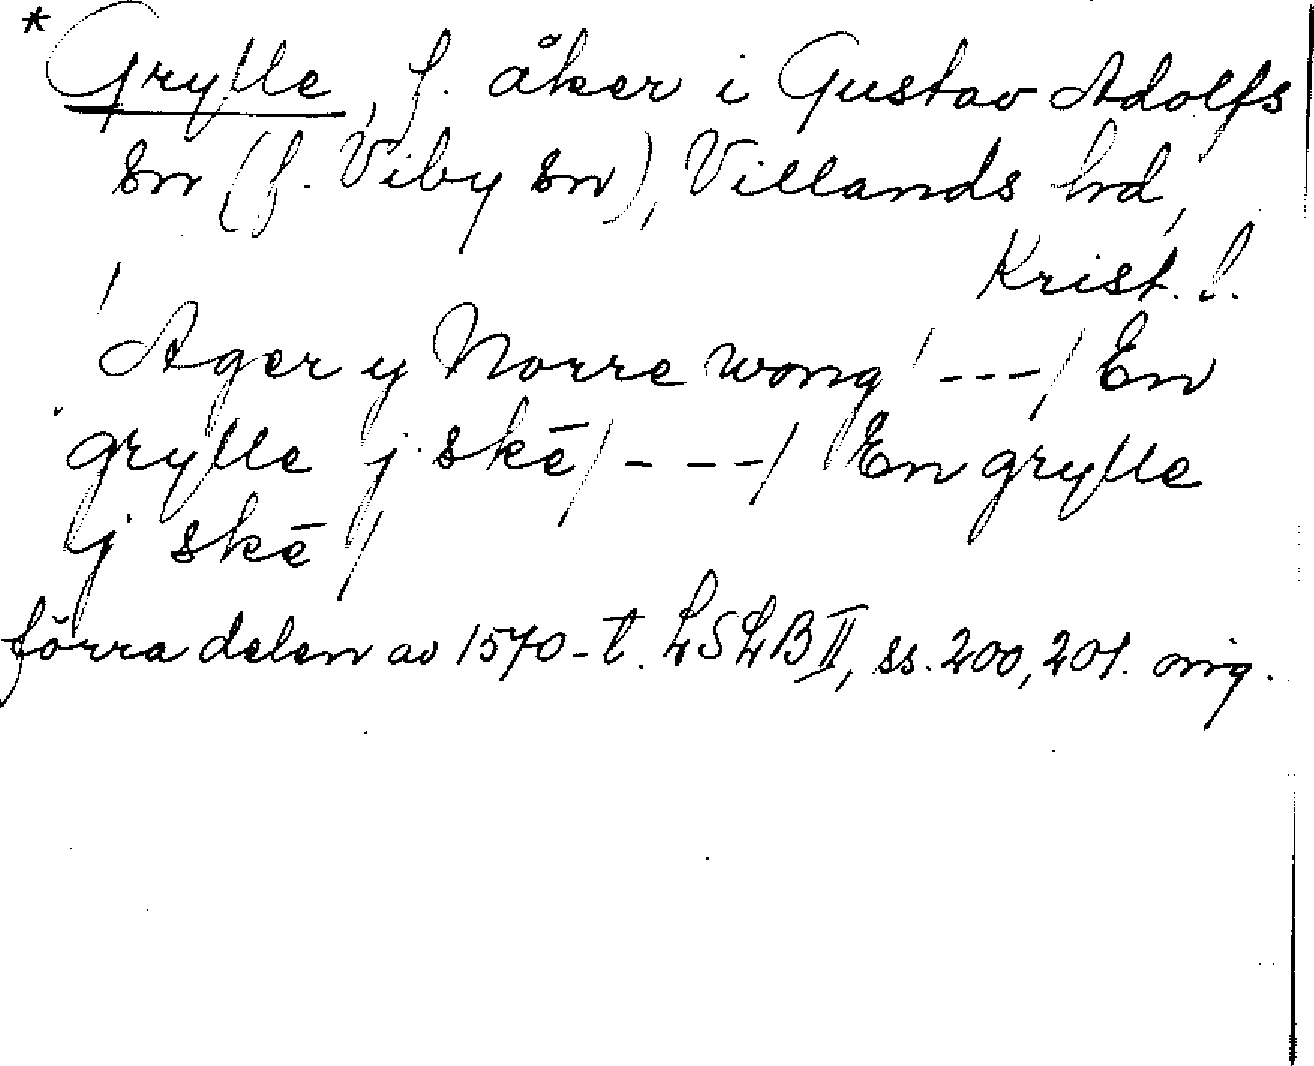 *Grylle, f. åker i Gustav Adolfs
sn (f. Viby sn), Villands hd,
Krist. l.
'Ager y Norre wong' ---/ En
grylle j skē/ ---/ En grylle
j skē/
förra delen av 1570-t. LSLB II, ss. 200, 201. orig.